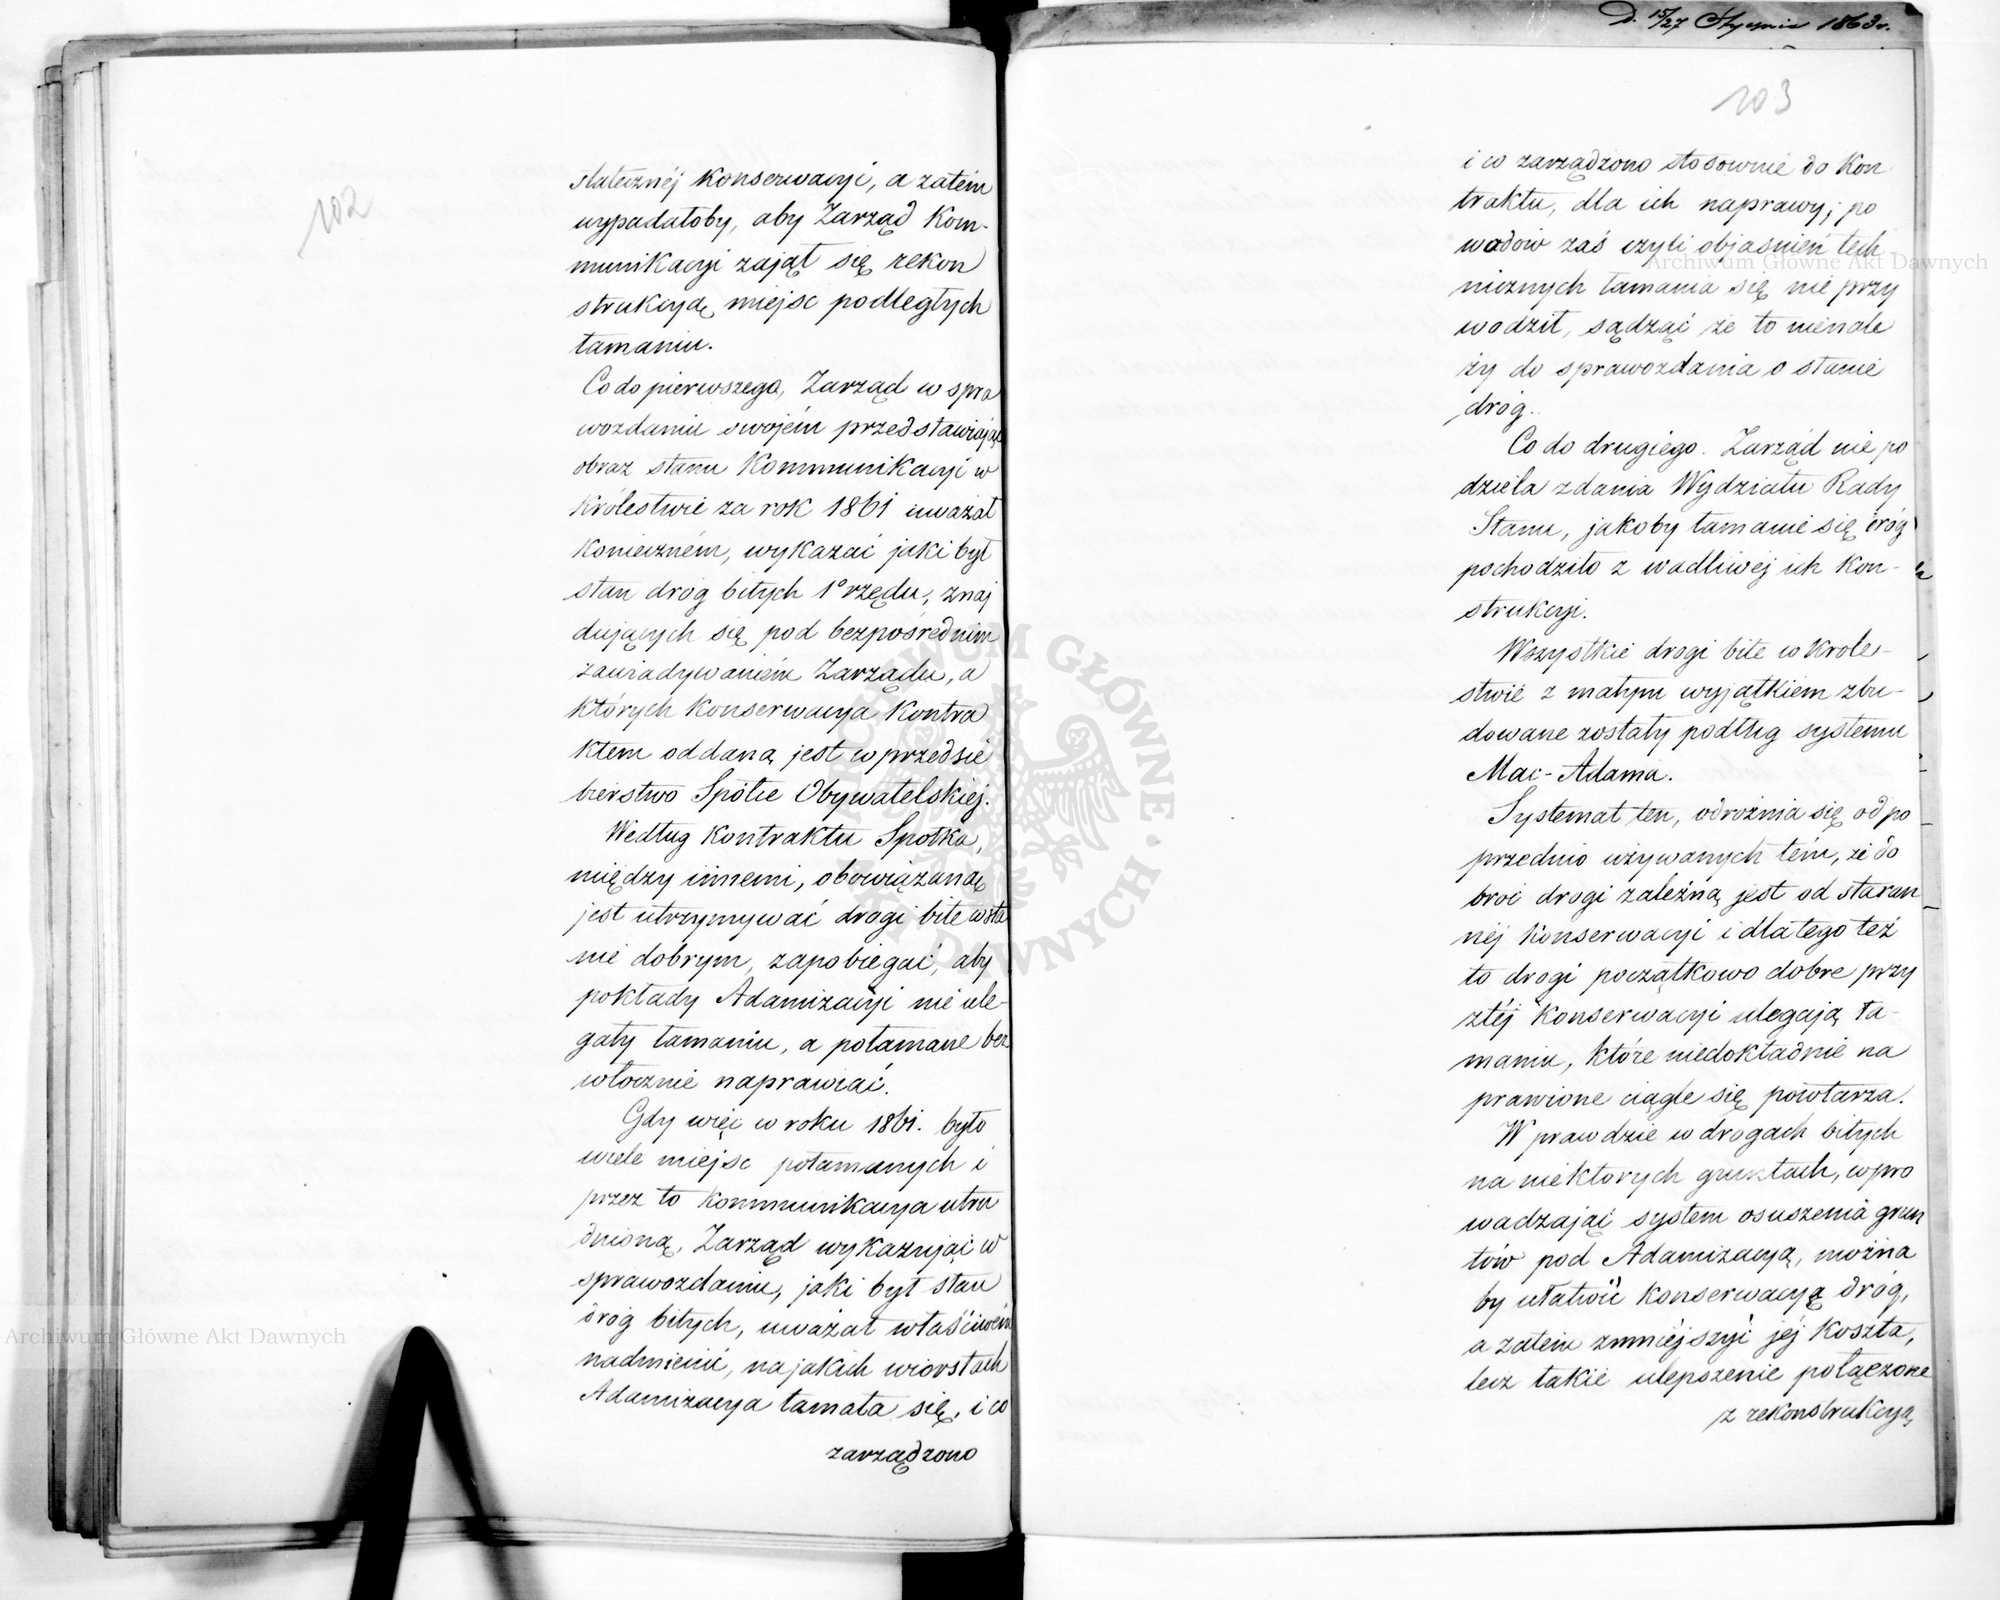 102
statecznéj Konserwacyi, a zatém
wypadałoby, aby Zarząd Kom-
munikacyi zajął się rekon
strukcyą miejsc podległych
łamaniu.
Co do pierwszego, Zarząd w spra
wozdaniu swojém przedstawiając
obraz stanu Kommunikacyi w
Królestwie za rok 1861 uważał
Konieczném, wykazać jaki był
stan dróg bitych 1º rzędu, znaj
dujących się pod bezpośrednim
zawiadywaniem Zarządu, a
których Konserwacya Kontra
ktem oddaną jest w przedsię
bierstwo Spółce Obywatelskiej.
Według Kontraktu Spółka,
między innemi, obowiązaną
jest utrzymywać drogi bite w sta
nie dobrym, zapobiegać, aby
pokłady Adamizacyi nie ule-
gały łamaniu, a połamane bez
włocznie naprawiać.
Gdy więc w roku 1861. było
wiele miejsc połamanych i
przez to Kommunikacya utru
dnioną, Zarząd wykazując w
sprawozdaniu, jaki był stan
dróg bitych, uważał właściwém
nadmienić, na jakich wiorstach
Adamizacya łamała się, i co
zarządzono
D. 15/27 Stycznia 1863 r.
103
i co zarządzono stosownie do Kon
traktu, dla ich naprawy; po
wodów zaś czyli objaśnień tech
nicznych łamania się nie przy
wodził, sądząc że to nienale
ży do sprawozdania o stanie
dróg.
Co do drugiego. Zarząd nie po
dziela zdania Wydziału Rady
Stanu, jakoby łamanie się dróg
pochodziło z wadliwej ich Kon-
strukcyi.
Wszystkie drogi bite w Króle-
stwie z małym wyjątkiem zbu-
dowane zostały podług systemu
Mac-Adama.
Systemat ten, odróżnia się od po
przednio używanych tém, że do
broć drogi zależną jest od staran
néj Konserwacyi i dla tego też
to drogi początkowo dobre przy
złéj Konserwacyi ulegają ła-
maniu, które niedokładnie na
prawione ciągle się powtarza.
W prawdzie w drogach bitych
na niektórych gruntach, wpro
wadzając system osuszenia grun
tów pod Adamizacyą, można
by ułatwić Konserwacyą dróg,
a zatem zmniejszyć jéj Koszta,
lecz takie ulepszenie połączone
z rekonstrukcyą
Archiwum Główne Akt Dawnych
Archiwum Główne Akt Dawnych
ARCHIWUM GŁÓWNE AKT DAWNYCH